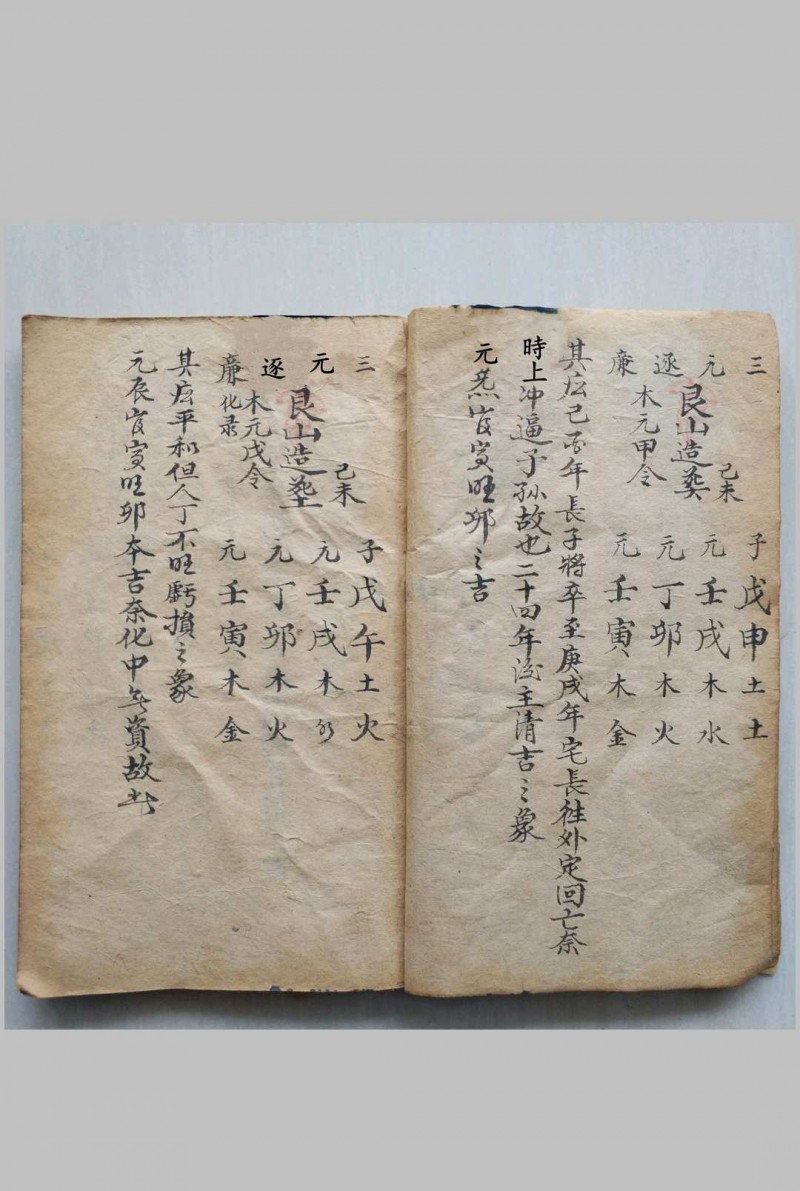 三 子戊申土土
己未
元 元壬戌木水
艮山造葵
逐 元丁卯木火
木元甲令
廉 元壬寅木金
其坟己酉年長子將卒至庚戌年宅長往外定回亡奈
時上冲逼子孫故也二十四年後主清吉之象
元 寅旺卯之吉
三 子戊午土火
己未
元 元壬戌木水
艮山造塟
逐 元丁卯木火
木元戌令
廉 元壬寅木金
化录
其坟平和但人丁不旺虧損之象
元辰 寅旺卯本吉奈化中 資故也